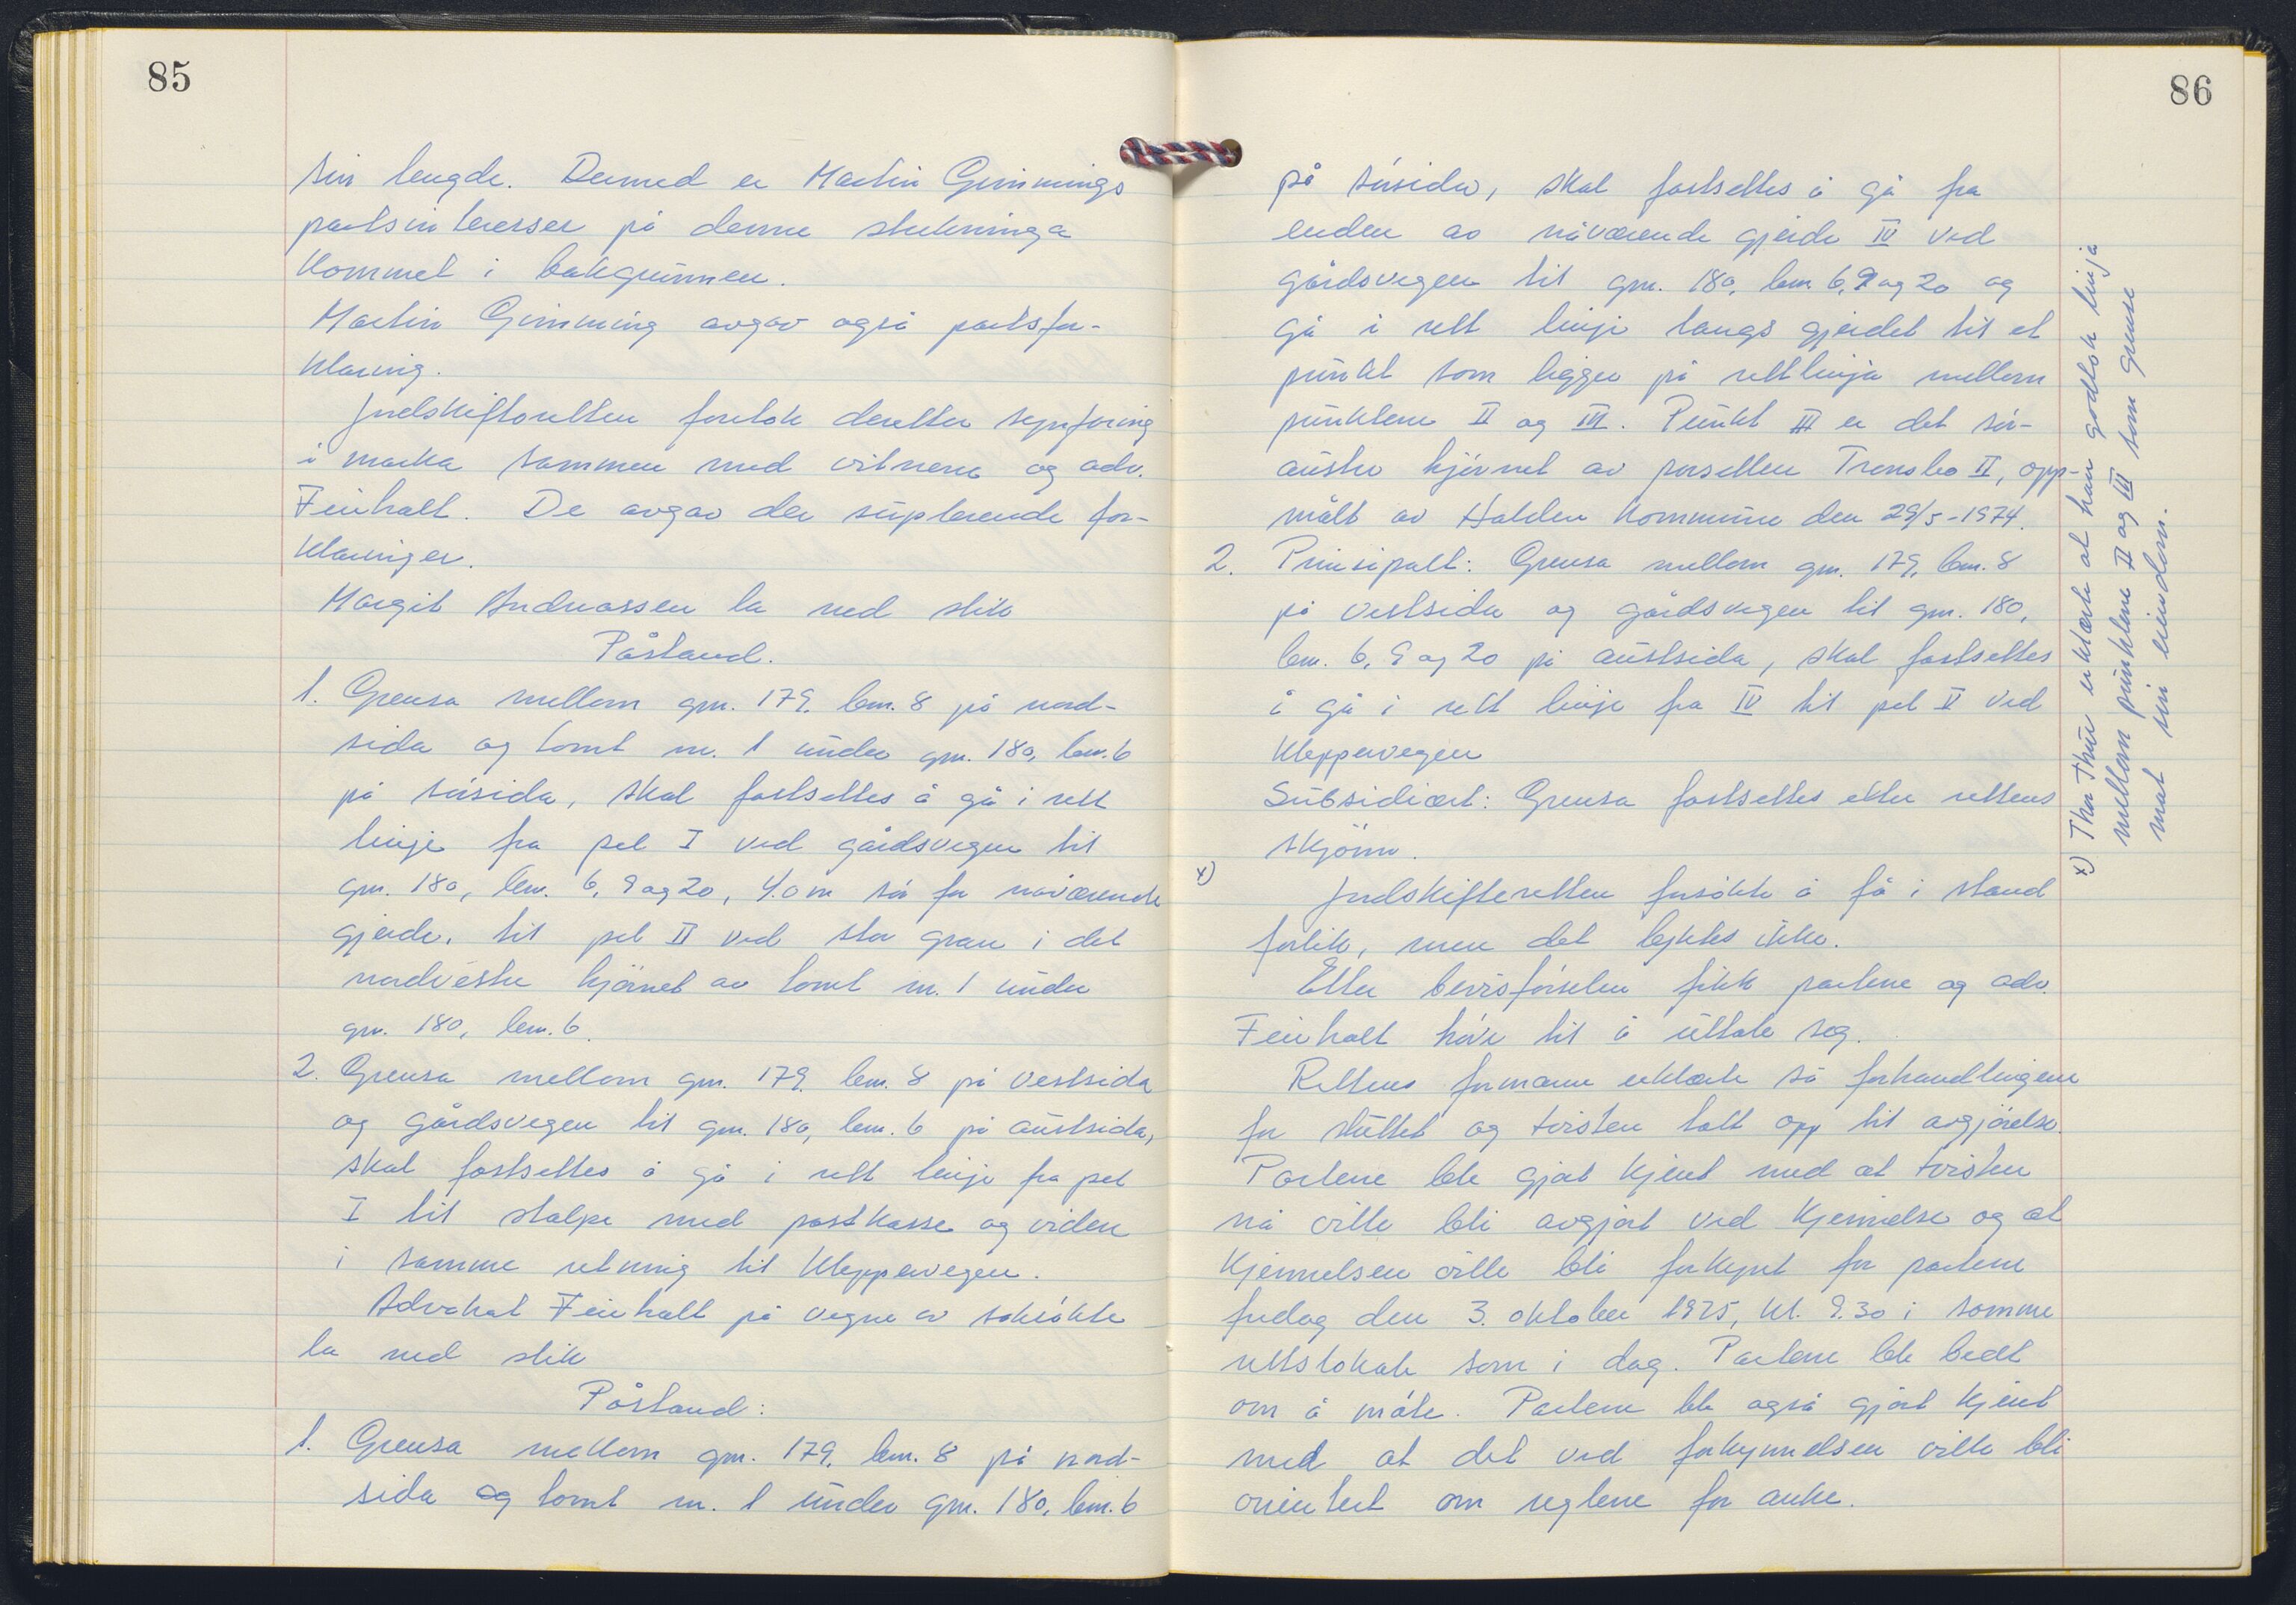 85
sin lengde. Dermed er Martin Gimmings
partsinteresser på denne strekninga
kommet i bakgrunnen.
Martin Gimming avgav også partsfor-
klaring.
Jordskifteretten foretok deretter synfaring
i marka sammen med vitnene og adv.
Feinholt. De avgav der suplerende for-
klaringer.
Margit Andreassen la ned slik
Påstand.
1. Grensa mellom gnr. 179, bnr. 8 på nord-
sida og tomt nr. 1 under gnr. 180, bnr. 6
på sørsida, skal fastsettes å gå i rett
linje fra pel I ved gårdsvegen til
gnr. 180, bnr. 6, 9 og 20, 4.0 m sør for nåværende
gjerde, til pel II ved stor gran i det
nordvestre hjørnet av tomt nr. 1 under
gnr. 180, bnr. 6.
2. Grensa mellom gnr. 179, bnr. 8 på vestsida
og gårdsvegen til gnr. 180, bnr. 6 på austsida,
skal fastsettes å gå i rett linje fra pel
I til stolpe med postkasse og videre
i samme retning til Kleppervegen.
Advokat Feinholt på vegne av saksøkte
la ned slik
Påstand:
1. Grensa mellom gnr. 179, bnr. 8 på nord-
sida og tomt nr. 1 under gnr. 180, bnr. 6
86
på sørsida, skal fastsettes å gå fra
enden av nåværende gjerde IV ved
gårdsvegen til gnr. 180, bnr. 6, 9 og 20 og
gå i rett linje langs gjerdet til et
punkt som ligger på rettlinja mellom
punktene II og III. Punkt III er det sør-
austre hjørnet av parsellen Tronsbo II, opp-
målt av Halden kommune den 29/5-1974.
2. Prinsipalt: Grensa mellom gnr. 179, bnr. 8
på vestsida og gårdsvegen til gnr. 180,
bnr. 6, 9 og 20 på austsida, skal fastsettes
å gå i rett linje fra IV til pel V ved
Kleppervegen
Subsidiært: Grensa fastsettes etter rettens
skjønn.
x)
Jordskifteretten forsøkte å få i stand
forlik, men det lyktes ikke.
Etter bevisførselen fikk partene og adv.
Feinholt høve til å uttale seg.
Rettens formann erklærte så forhandlingene
for sluttet og tvisten tatt opp til avgjørelse.
Partene ble gjort kjent med at tvisten
nå ville bli avgjort ved kjennelse og at
kjennelsen ville bli forkynt for partene
fredag den 3. oktober 1975, kl. 9.30 i samme
rettslokale som i dag. Partene ble bedt
om å møte. Partene ble også gjort kjent
med at det ved forkynnelsen ville bli
orientert om reglene for anke.
x) Thor Thue erklærte at han godtok linja
mellom punktene II og III som grense
mot sin eiendom.